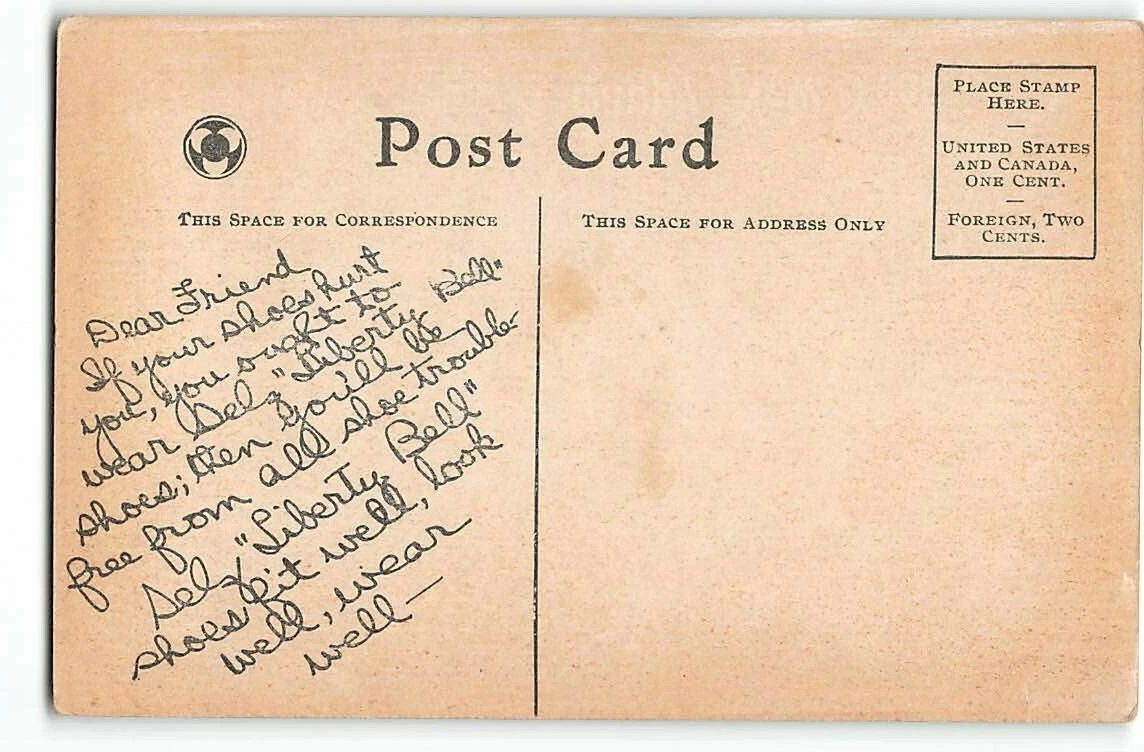 Post Card
THIS SPACE FOR CORRESPONDENCE
Dear Friend
If your shoes hurt
you, you ought to
wear Selz "Liberty Bell"
shoes; then you'll be
free from all shoe trouble-
Selz "Liberty Bell"
shoes fit well, look
well, wear
well—
THIS SPACE FOR ADDRESS ONLY
PLACE STAMP
HERE.
—
UNITED STATES
AND CANADA,
ONE CENT.
—
FOREIGN, TWO
CENTS.